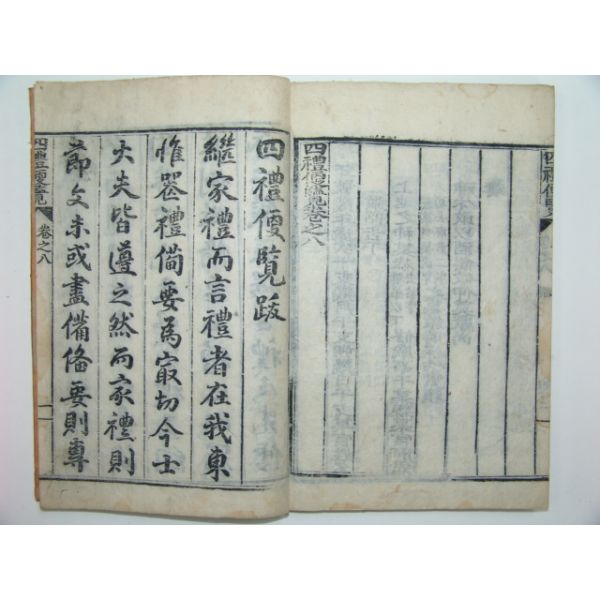 四禮便覽
四禮便覽卷之八
四禮便覽跋
繼家禮而言禮者在我東
惟喪禮備要爲㝡切今士
大夫皆遵之然而家禮則
節文未或盡備備要則專
四禮便覽 卷之八 一